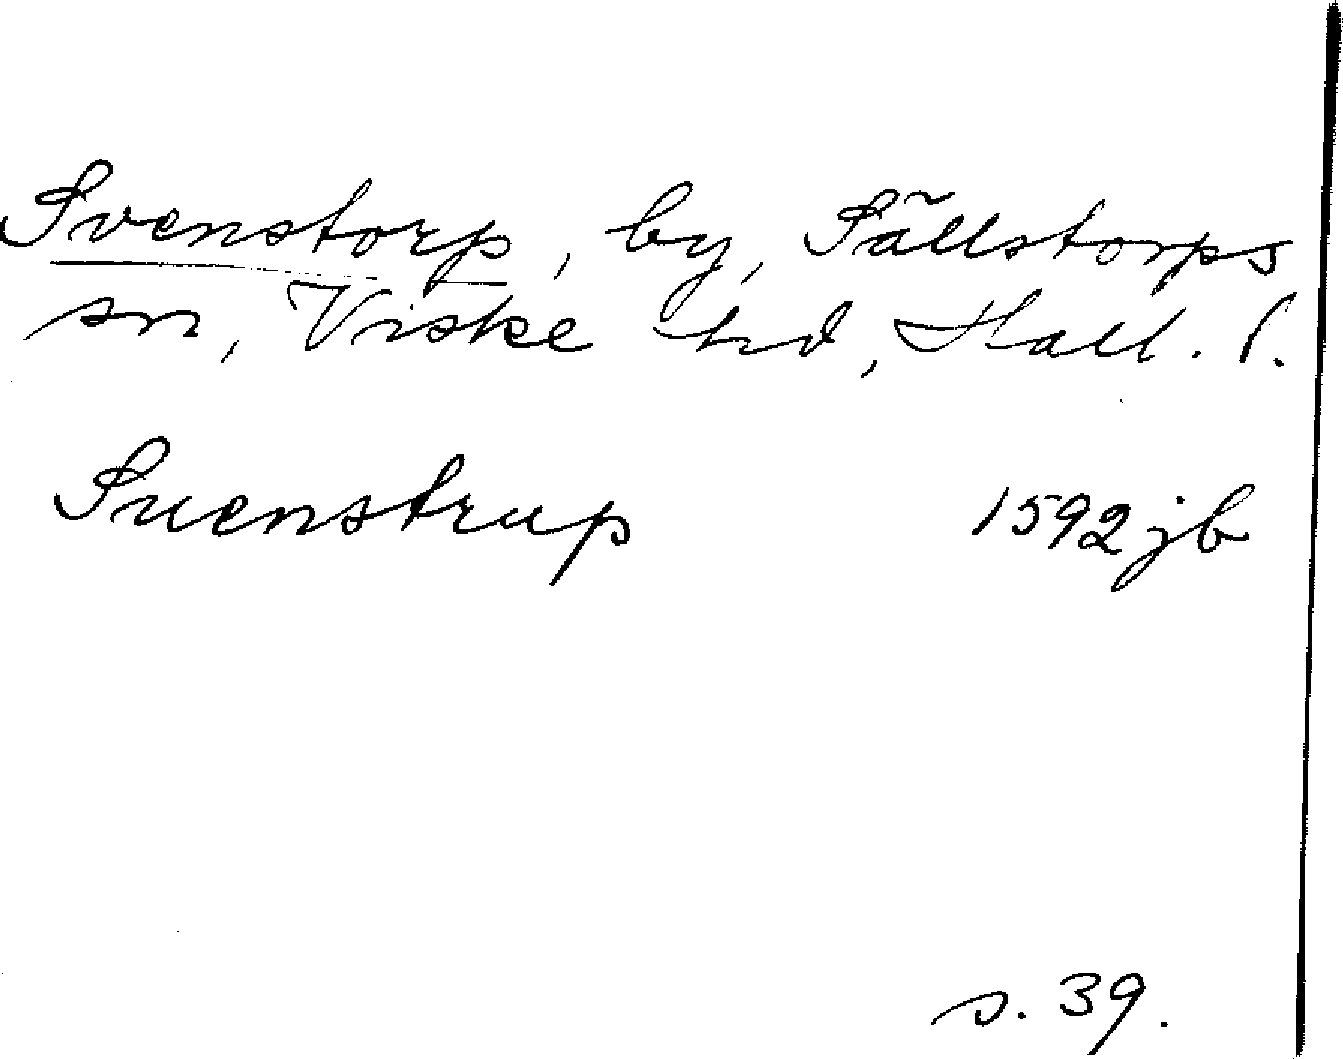 Svenstorp, by, Sällstorps
sn, Viske hd, Hall. l.
Suenstrup 1592 jb
s. 39.